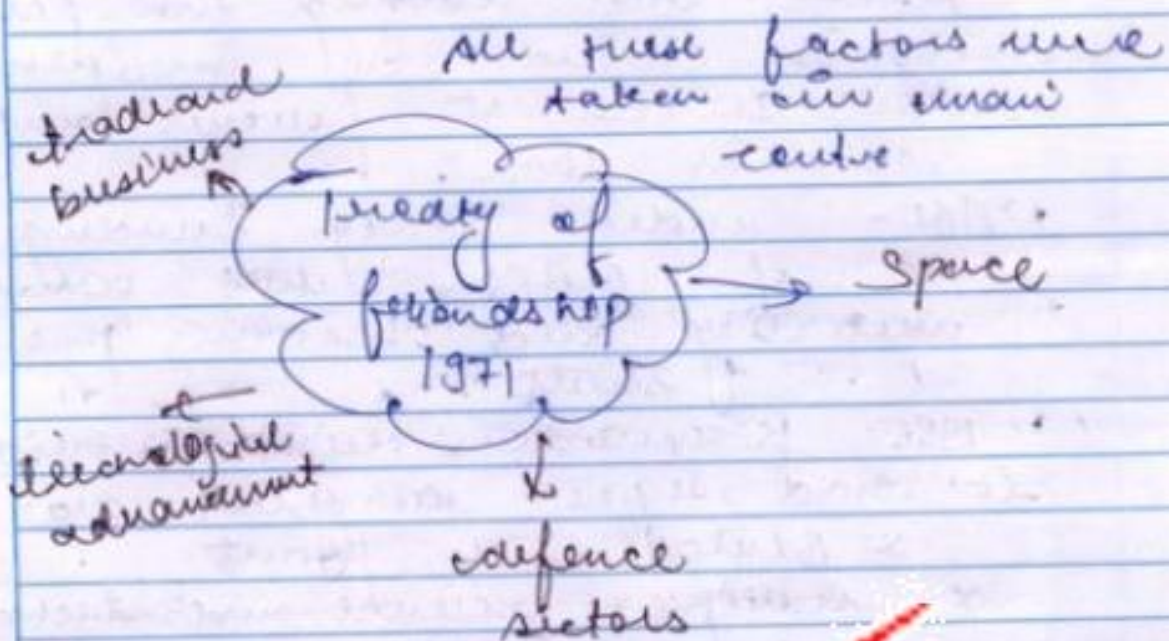 All these factors were
taken in main
centre
trade and
business
Treaty of
friendship
1971
Space
technological
advancement
defence
sectors